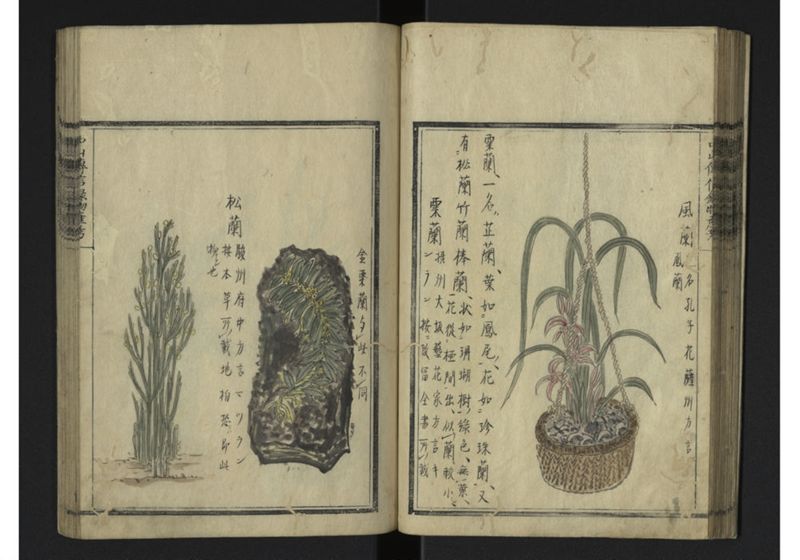 風蘭 一名孔子花薩州方言
風蘭
粟蘭、一名芷蘭、葉如鳳尾、花如珍珠蘭、又
有松蘭竹蘭棒蘭、狀如珊瑚樹、綠色、無葉、
花從椏間出、似蘭較小
粟蘭 摂州大坂藝花家方言キ
ンラン 按致富全書所載
金粟蘭与此不同
松蘭 駿州府中方言マツラン
按本草所載地柏恐即此
物也
中山傳信録物産考